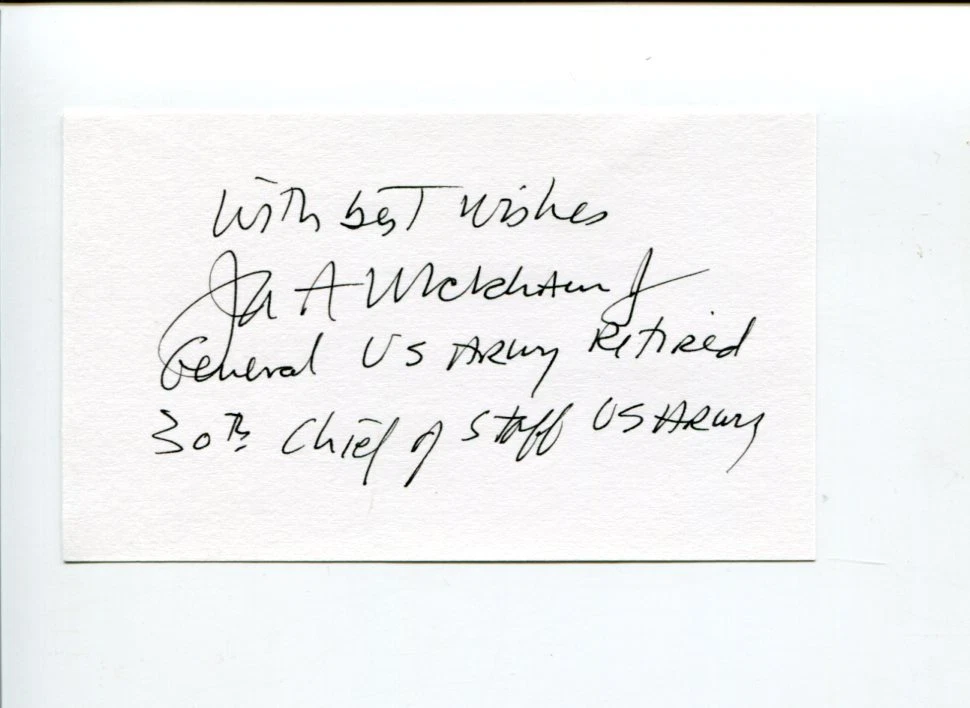 With best wishes
Jn A Wickham Jr
General US Army Retired
30th Chief of Staff US Army